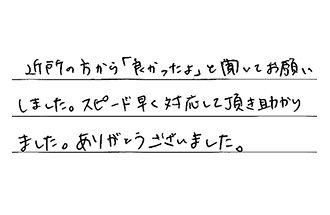 近所の方から「良かったよ」と聞いてお願い
しました。スピード早く対応して頂き助かり
ました。ありがとうございました。